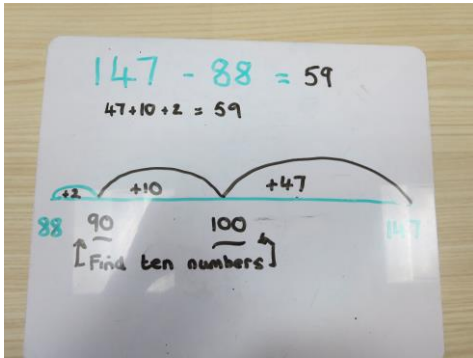 147 - 88 = 59
47+10+2 = 59
+2 +10 +47
88 90 100 147
Find ten numbers